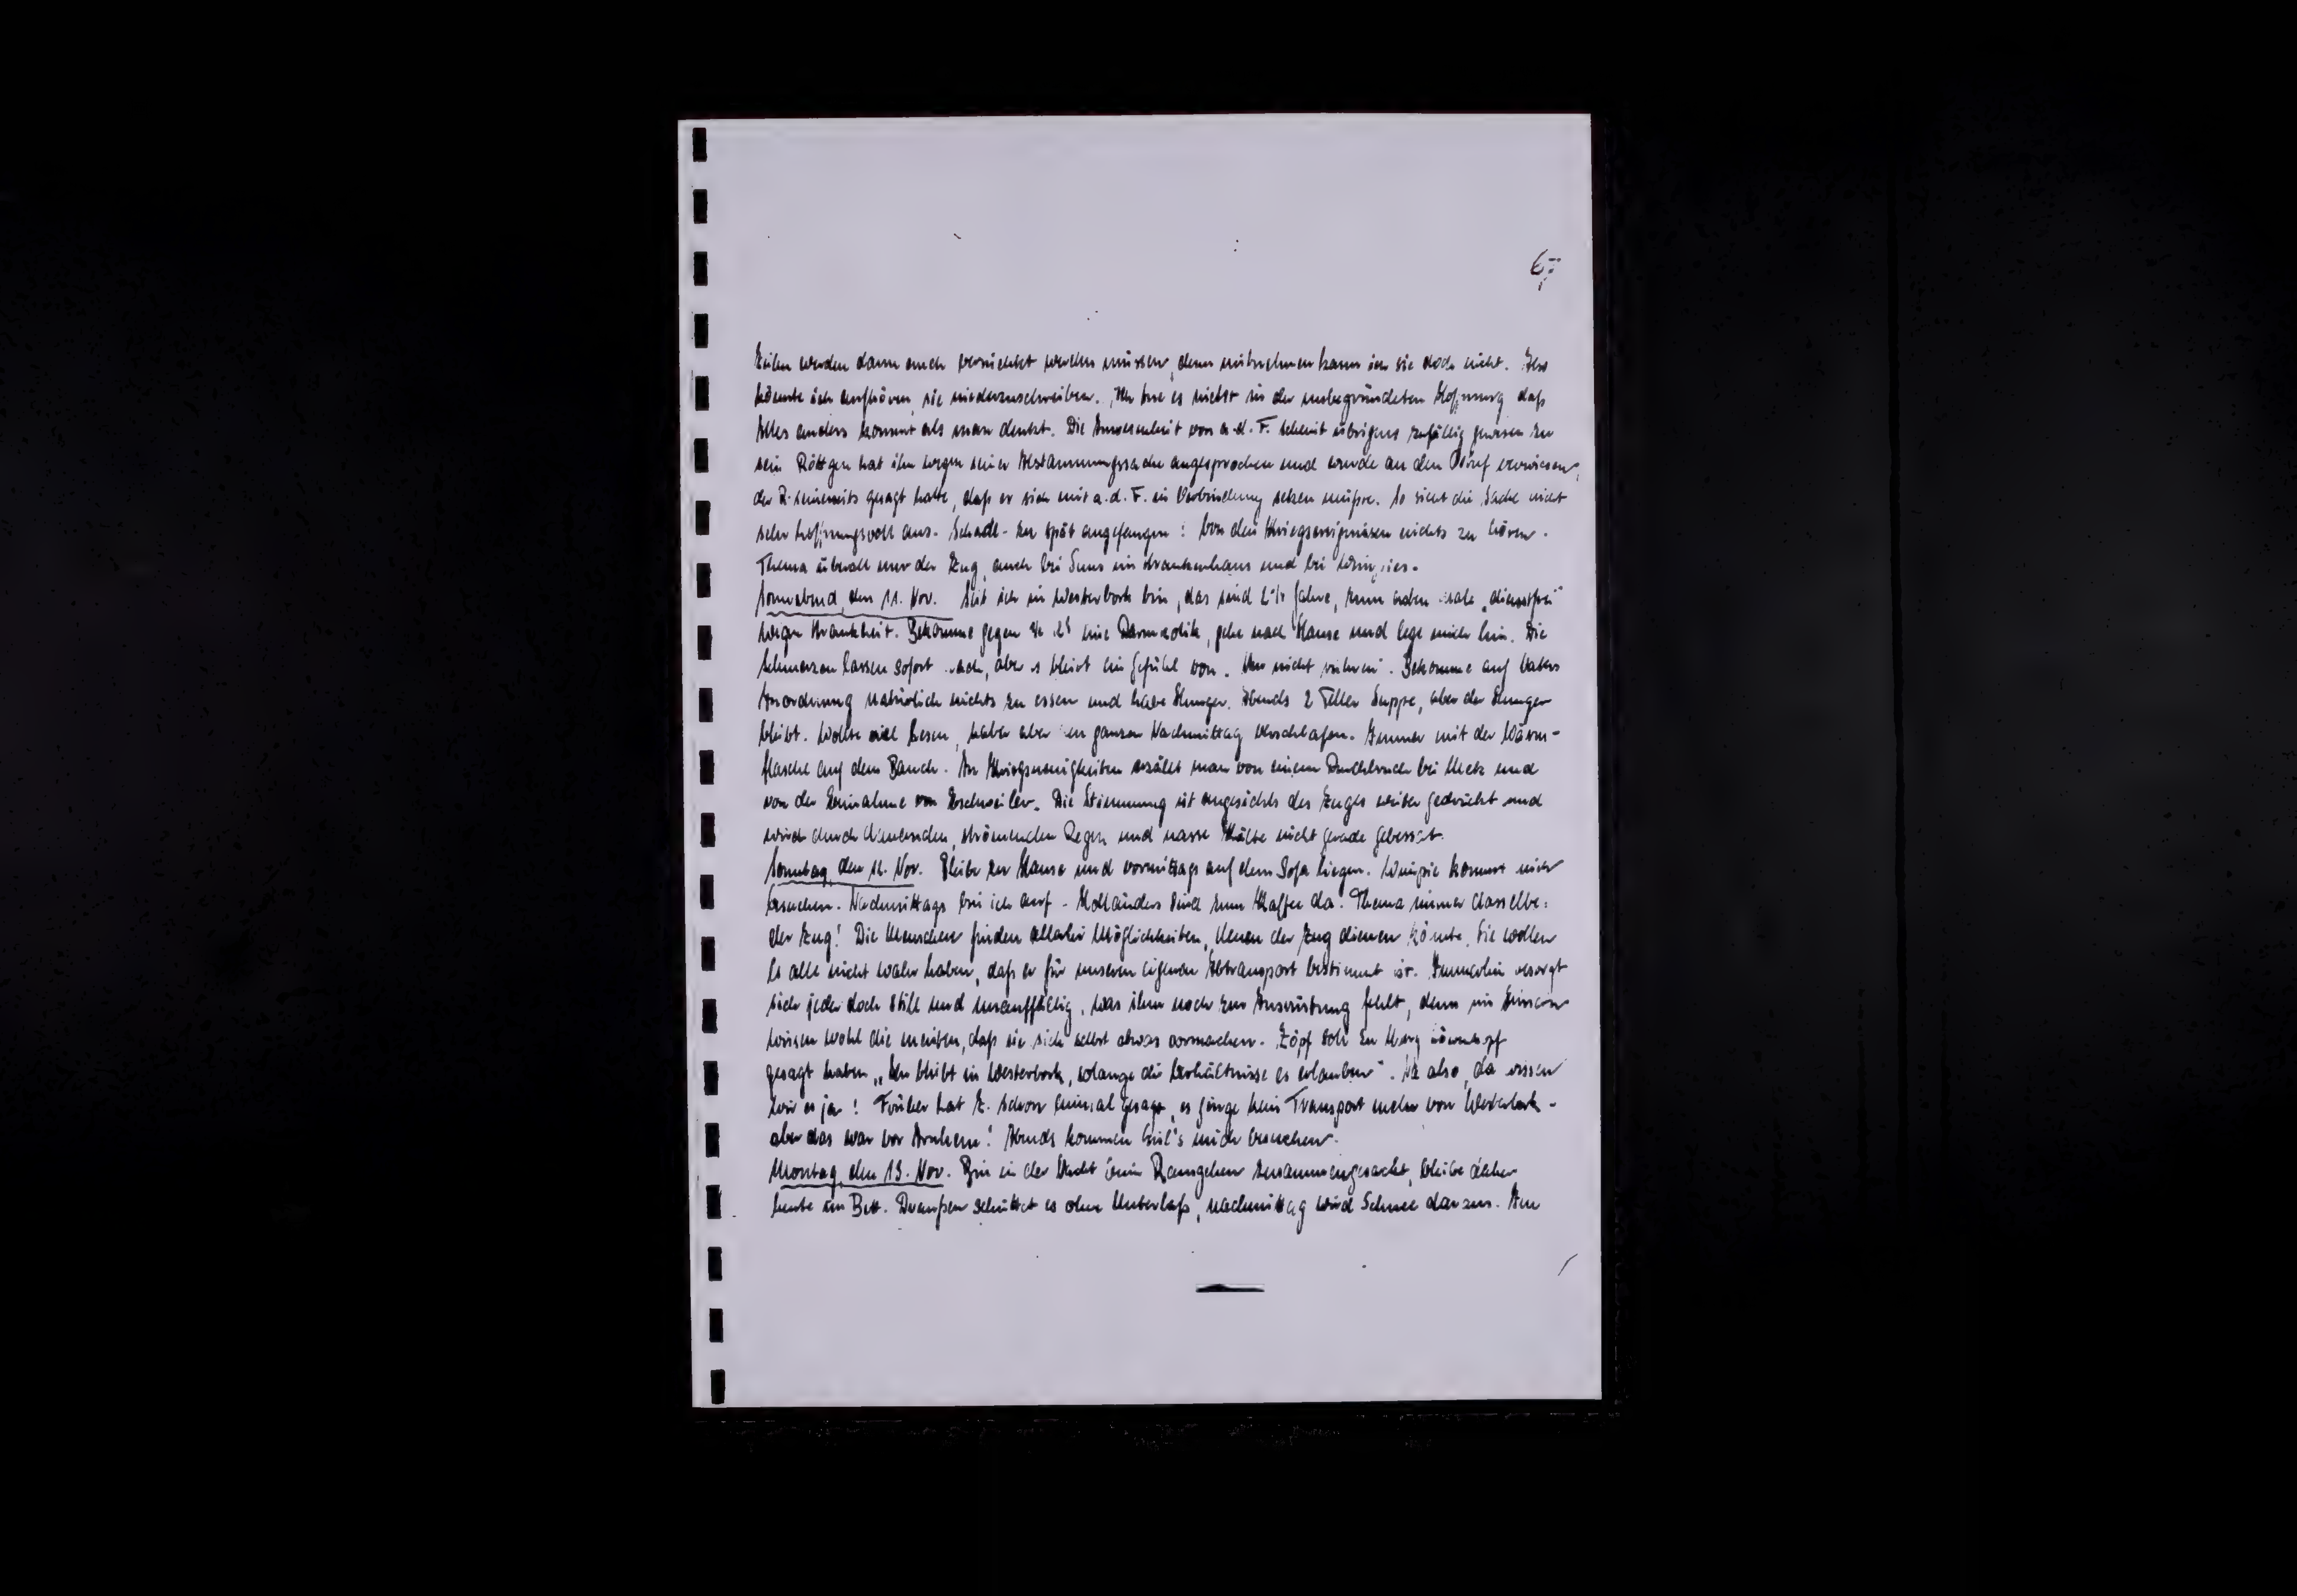 67
Zeilen werden dann auch vernichtet werden müssen, denn mitnehmen kann ich sie doch nicht. Also
könnte ich aufhören, sie niederzuschreiben. Ich tue es nicht in der unbegründeten Hoffnung daß
Alles anders kommt als man denkt. Die Anwesenheit von a.d.F. scheint übrigens zufällig gewesen zu
sein Röttgen hat ihn wegen seiner Abstammungssache angesprochen und wurde an den verwiesen,
der R. seinerseits gesagt hatte, daß er sich mit a.d.F. in Verbindung setzen müßte. So sieht die Sache nicht
sehr hoffnungsvoll aus. Schade - zu spät angefangen! Von den Kriegsereignissen nichts zu hören.
Thema überall nur der Zug, auch bei Suus im Krankenhaus und bei
Sonnabend, den 11. Nov. Seit ich in Westerbork bin, das sind Jahre, zum male "dienstfrei"
wegen Krankheit. Bekomme gegen eine Darmkolik, gehe nach Hause und lege mich hin. Die
Schmerzen lassen sofort nach, aber es bleibt ein Gefühl von "Rühr mich nicht an". Bekomme auf Vaters
Anordnung natürlich nichts zu essen und habe Hunger. Abends 2 Teller Suppe, aber der Hunger
bleibt. Wollte viel lesen, habe aber den ganzen Nachmittag verschlafen. Immer mit der Wärm-
flasche auf dem Bauch. An Kriegsneuigkeiten erzählt man von einem Durchbruch bei Metz und
von der Einnahme von Eschweiler. Die Stimmung ist angesichts des Zuges weiter gedrückt und
wird durch dauernden, strömenden Regen und nasse Kälte nicht gerade gebessert.
Sonntag, den 12. Nov. Bleibe zu Hause und vormittags auf dem Sofa liegen. kommt mich
besuchen. Nachmittags bin ich auf - Holländers sind zum Kaffee da. Thema immer dasselbe:
der Zug! Die Menschen finden allerlei Möglichkeiten, denen der Zug dienen könnte. Sie wollen
es alle nicht wahr haben, daß er für unseren eigenen Abtransport bestimmt ist. Immerhin besorgt
sich jeder doch still und unauffällig, was ihm noch zur Ausrüstung fehlt, denn im Grunde
wissen wohl die meisten, daß sie sich selbst etwas vormachen. Zöpf soll zu
gesagt haben "Ihr bleibt in Westerbork, solange die Verhältnisse es erlauben". Na also, da wissen
wir es ja! Früher hat Z. schon einmal gesagt, es ginge kein Transport mehr von Westerbork -
aber das war vor Arnhem! Abends kommen mich besuchen.
Montag, den 13. Nov. Bin in der Nacht beim Rausgehen zusammengesackt, bleibe daher
heute im Bett. Draußen schüttet es ohne Unterlaß, nachmittag wird Schnee daraus. Am